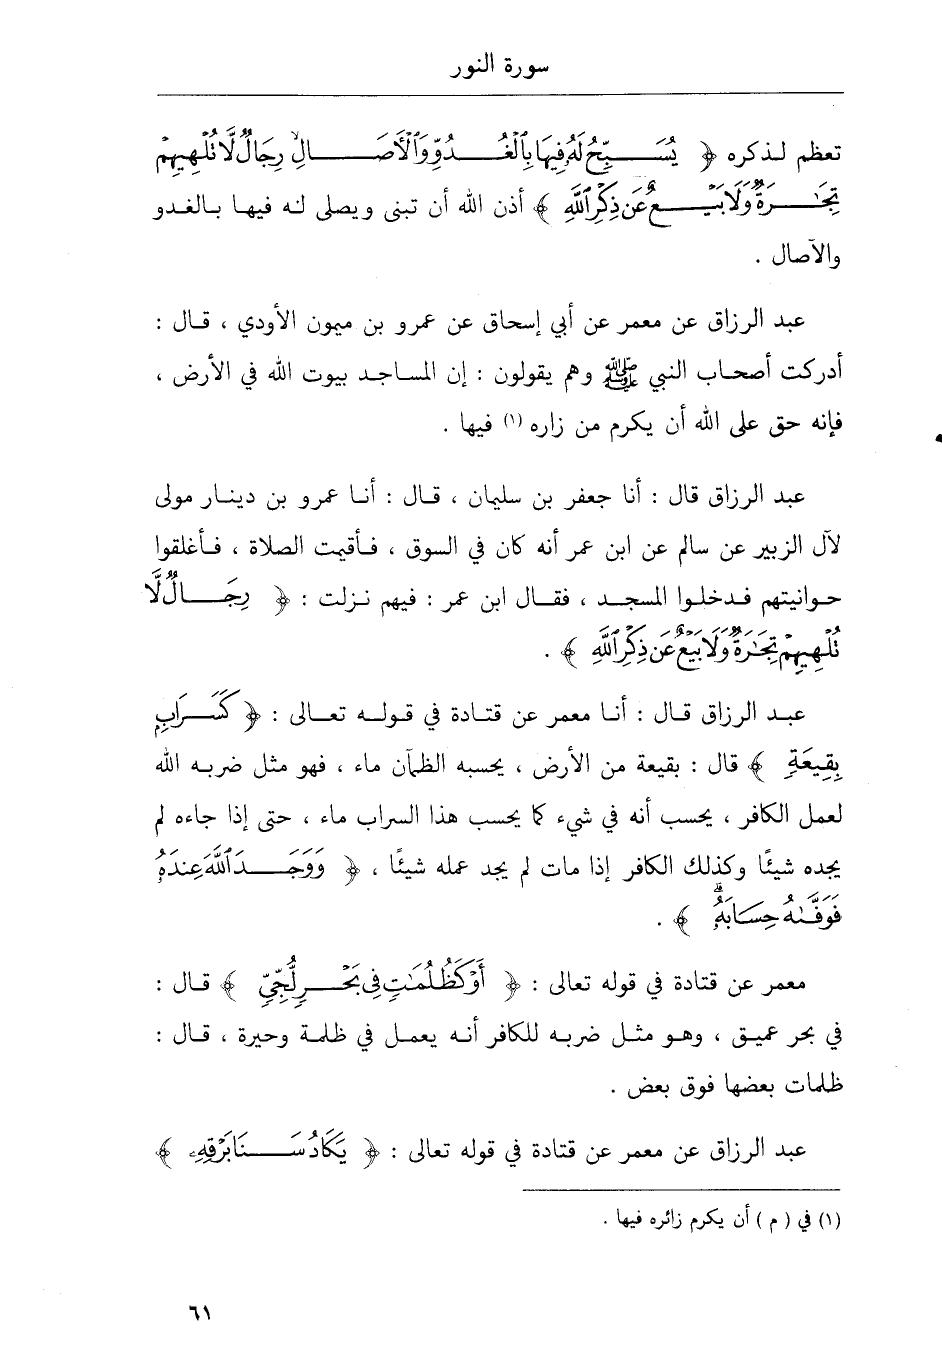 سورة النور
تعظم لذكره ﴿ يُسَبِّحُ لَهُ فِيهَا بِالْغُدُوِّ وَالْآصَالِ رِجَالٌ لَّا تُلْهِيهِمْ
تِجَارَةٌ وَلَا بَيْعٌ عَن ذِكْرِ اللَّهِ ﴾ أذن الله أن تبنى ويصلى له فيها بالغدو
والآصال .
عبد الرزاق عن معمر عن أبي إسحاق عن عمرو بن ميمون الأودي ، قال :
أدركت أصحاب النبي ﷺ وهم يقولون : إن المساجد بيوت الله في الأرض ،
فإنه حق على الله أن يكرم من زاره (١) فيها .
عبد الرزاق قال : أنا جعفر بن سليمان ، قال : أنا عمرو بن دينار مولى
لآل الزبير عن سالم عن ابن عمر أنه كان في السوق ، فأقيمت الصلاة ، فأغلقوا
حوانيتهم فدخلوا المسجد ، فقال ابن عمر : فيهم نزلت : ﴿ رِجَالٌ لَّا
تُلْهِيهِمْ تِجَارَةٌ وَلَا بَيْعٌ عَن ذِكْرِ اللَّهِ ﴾ .
عبد الرزاق قال : أنا معمر عن قتادة في قوله تعالى : ﴿ كَسَرَابٍ
بِقِيعَةٍ ﴾ قال : بقيعة من الأرض ، يحسبه الظمآن ماء ، فهو مثل ضربه الله
لعمل الكافر ، يحسب أنه في شيء كما يحسب هذا السراب ماء ، حتى إذا جاءه لم
يجده شيئًا وكذلك الكافر إذا مات لم يجد عمله شيئًا ، ﴿ وَوَجَدَ اللَّهَ عِندَهُ
فَوَفَّاهُ حِسَابَهُ ﴾ .
معمر عن قتادة في قوله تعالى : ﴿ أَوْ كَظُلُمَاتٍ فِي بَحْرٍ لُّجِّيٍّ ﴾ قال :
في بحر عميق ، وهو مثل ضربه للكافر أنه يعمل في ظلمة وحيرة ، قال :
ظلمات بعضها فوق بعض .
عبد الرزاق عن معمر عن قتادة في قوله تعالى : ﴿ يَكَادُ سَنَا بَرْقِهِ ﴾
(١) في ( م ) أن يكرم زائره فيها .
٦١